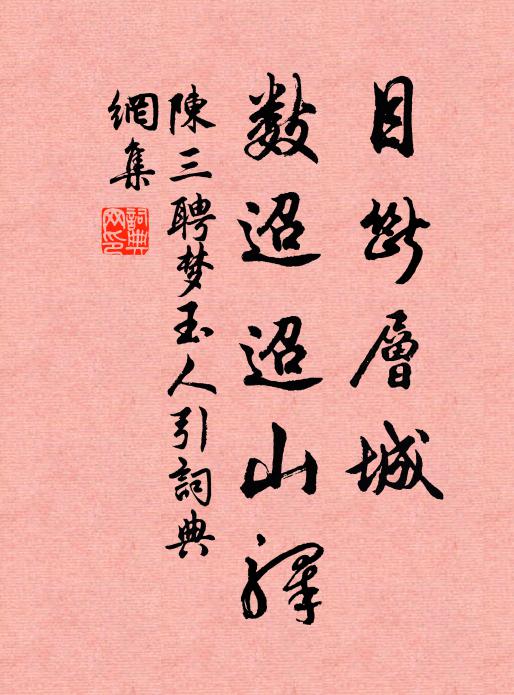 目斷層城
數迢迢山驛
陳三聘梦玉人引詞典
網集
詞典
网印